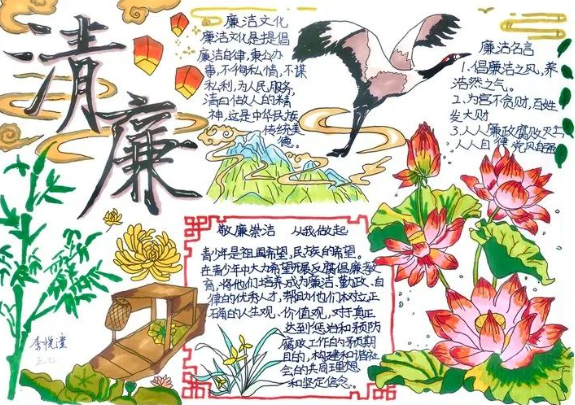 清廉
廉洁文化
廉洁文化是提倡
廉洁自律,秉公办
事,不徇私情,不谋
私利,为人民服务,
清白做人的精
神,这是中华民族
传统美
德。
廉洁名言
1.倡廉洁之风,养
浩然之气。
2.为官不贪财,百姓
发大财
3.人人廉政腐败灭亡
人人自律党风自正
敬廉崇洁 从我做起
青少年是祖国希望,民族的希望。
在青少年中大力希望开展反腐倡廉教
育,将他们培养成为廉洁、勤政、自
律的优秀人才,帮助他们树立正
正确的人生观、价值观,对于真正
达到惩治和预防
腐败工作的预期
目的,构建和谐社
会的共同理想
和坚定信念。
李悦